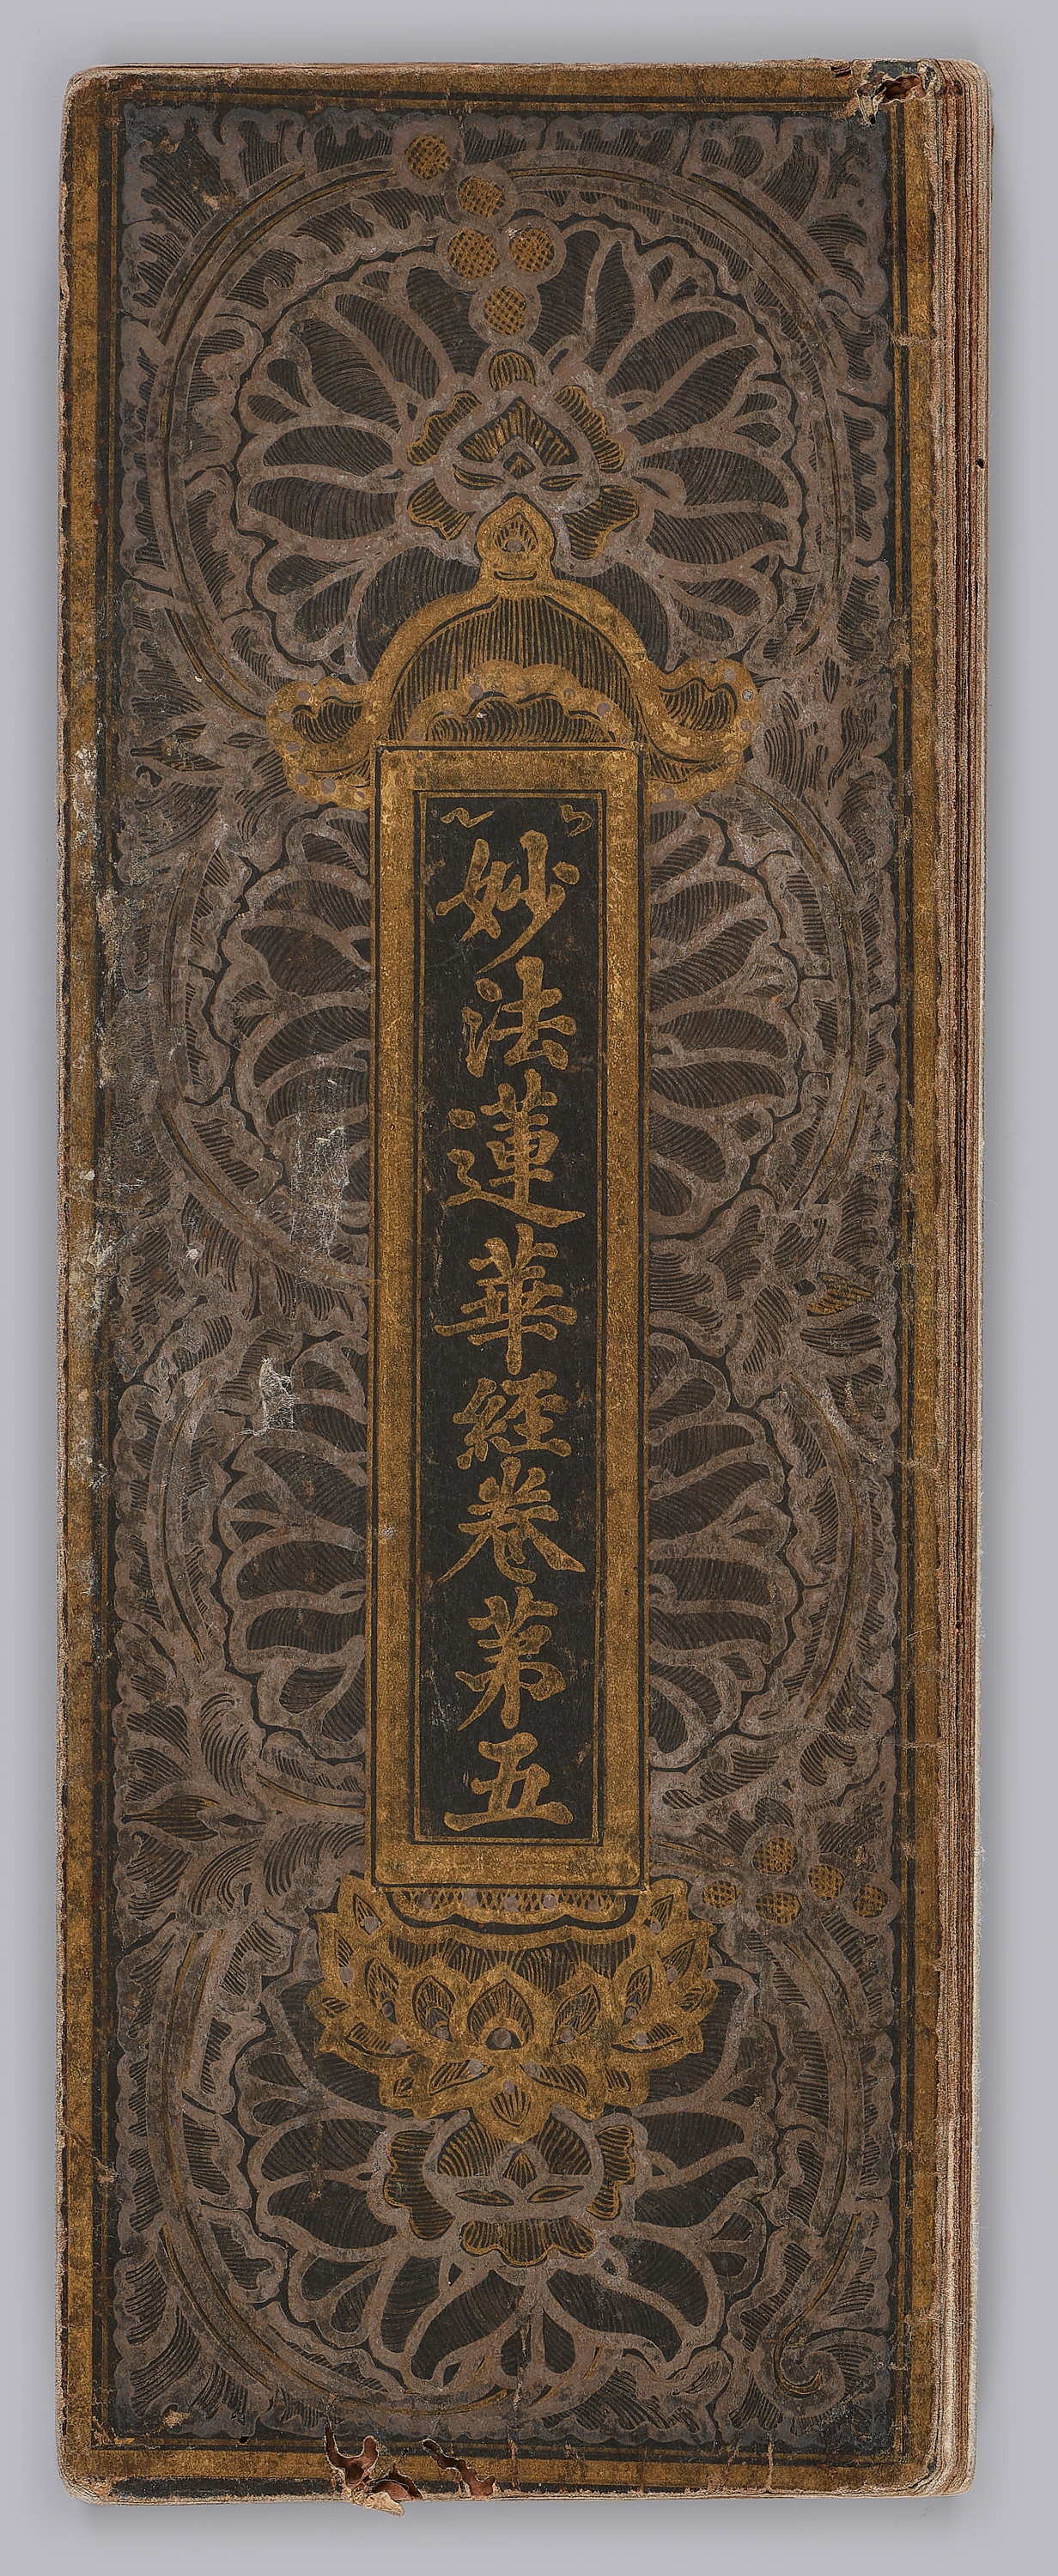 妙法蓮華經卷苐五